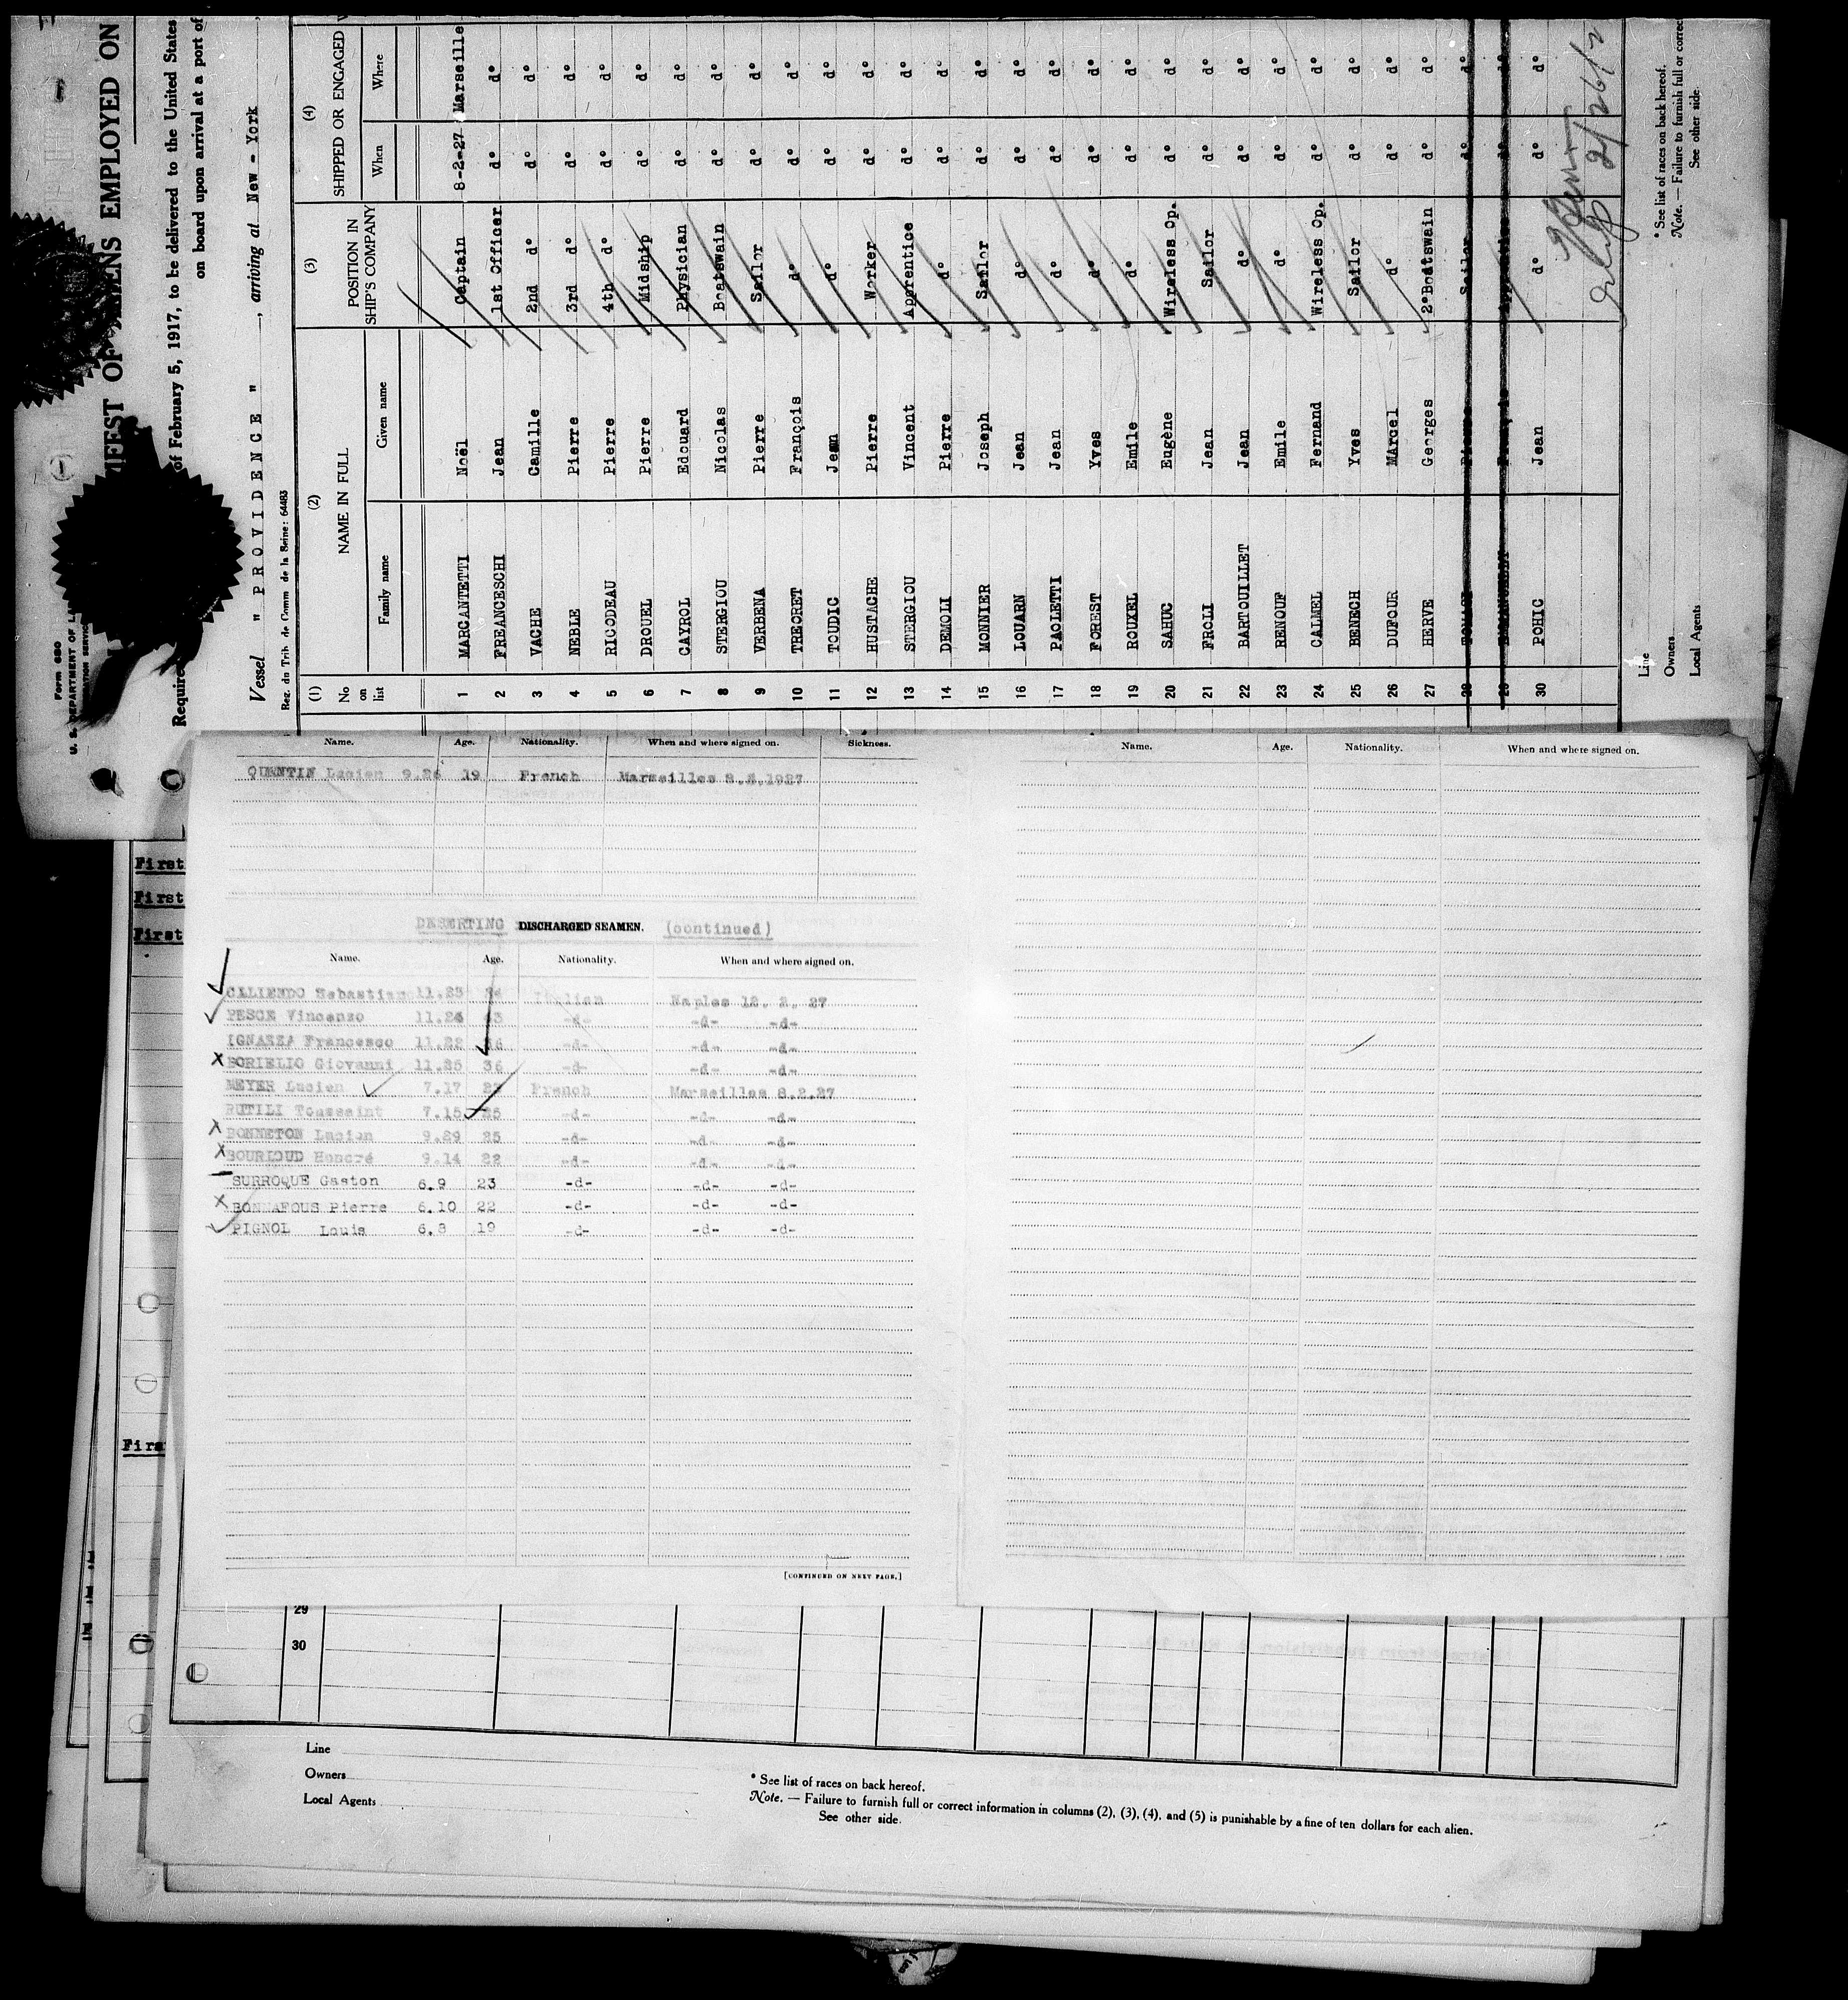 Form 680
U. S. DEPARTMENT OF
EMPLOYED ON
of February 5, 1917, to be delivered to the United States
on board upon arrival at a port of
Vessel " PROVIDENCE " , arriving at New - York
Reg. du Trib. de Comm de la Seine: 64483
(1) (2) (3) (4)
No on list NAME IN FULL POSITION IN SHIP'S COMPANY SHIPPED OR ENGAGED
Family name Given name When Where
1 MARCANTETTI Noël Captain 8-2-27 Marseille
2 FREANCESCHI Jean 1st Officer d° d°
3 VACHE Camille 2nd d° d° d°
4 NEBLE Pierre 3rd d° d° d°
5 RICODEAU Pierre 4th d° d° d°
6 DROUEL Pierre Midship d° d°
7 CAYROL Edouard Physician d° d°
8 STERGIOU Nicolas Boatswain d° d°
9 VERBENA Pierre Sailor d° d°
10 TREORET François d° d° d°
11 TOUDIC Jean d° d° d°
12 HUSTACHE Pierre Worker d° d°
13 STERGIOU Vincent Apprentice d° d°
14 DEMOLI Pierre d° d° d°
15 MONNIER Joseph Sailor d° d°
16 LOUARN Jean d° d° d°
17 PAOLETTI Jean d° d° d°
18 FOREST Yves d° d° d°
19 ROUXEL Emile d° d° d°
20 SAHUC Eugène Wireless Op. d° d°
21 FROLI Jean Sailor d° d°
22 BARTOUILLET Jean d° d° d°
23 RENOUF Emile d° d° d°
24 CALMEL Fernand Wireless Op. d° d°
25 BENECH Yves Sailor d° d°
26 DUFOUR Marcel d° d° d°
27 HERVE Georges 2°Boatswain d° d°
28 Sailor d° d°
30 POHIC Jean d° d° d°
Line
Owners
Local Agents
* See list of races on back hereof.
Note. — Failure to furnish full or correc
See other side.
Name. Age. Nationality. When and where signed on. Sickness.
QUENTIN Lucien 9.26 19 French Marseilles 8.2.1927
DESERTING DISCHARGED SEAMEN. (continued)
Name. Age. Nationality. When and where signed on.
CALIENDO Sebastiano 11.23 Italian Naples 12. 2. 27
PESCE Vincenzo 11.24 -d- -d- -d-
IGNAZZA Francesco 11.22 -d- -d- -d-
BORIELLO Giovanni 11.25 36 -d- -d- -d-
MEYER Lucien 7.17 French Marseilles 8.2.27
RUTILI Toussaint 7.15 25 -d- -d- -d-
BONNETON Lucien 9.29 25 -d- -d- -d-
BOURLOUD Honoré 9.14 22 -d- -d- -d-
SURROQUE Gaston 6.9 23 -d- -d- -d-
BONNAFOUS Pierre 6.10 22 -d- -d- -d-
PIGNOL Louis 6.8 19 -d- -d- -d-
[CONTINUED ON NEXT PAGE.]
Name. Age. Nationality. When and where signed on.
First
First
First
29
30
Line
Owners
Local Agents
* See list of races on back hereof.
Note. — Failure to furnish full or correct information in columns (2), (3), (4), and (5) is punishable by a fine of ten dollars for each alien.
See other side.